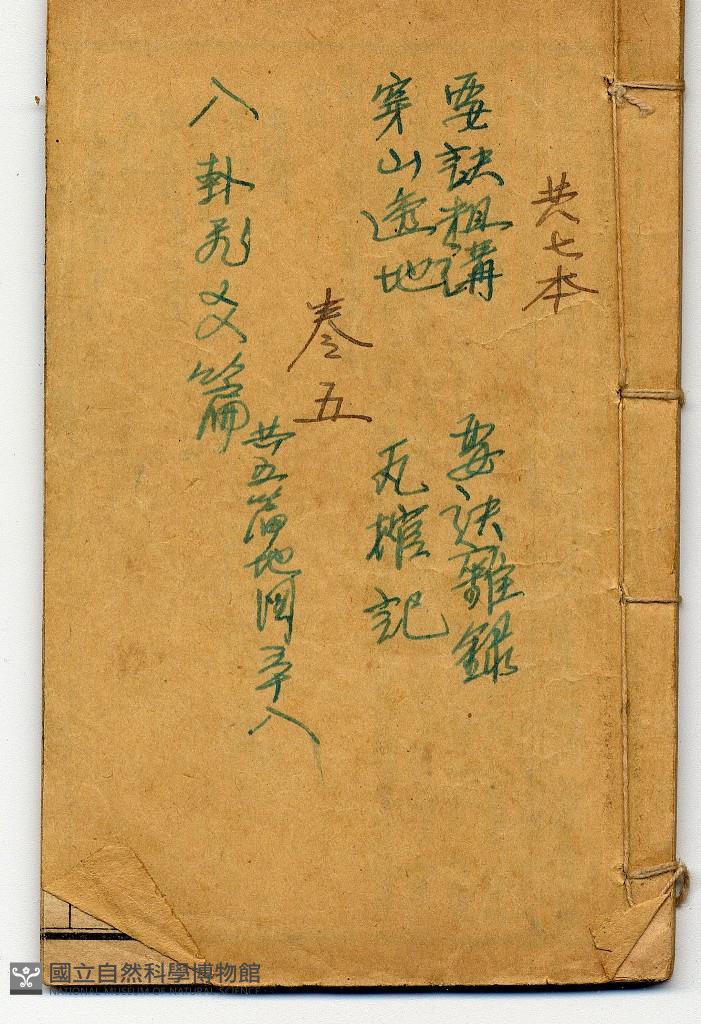 共七本
要訣粗講
要訣雜錄
穿山透地
瓦棺記
卷五
共五篇地圖三十八
八卦形爻篇
國立自然科學博物館
NATIONAL MUSEUM OF NATURAL SCIENCE